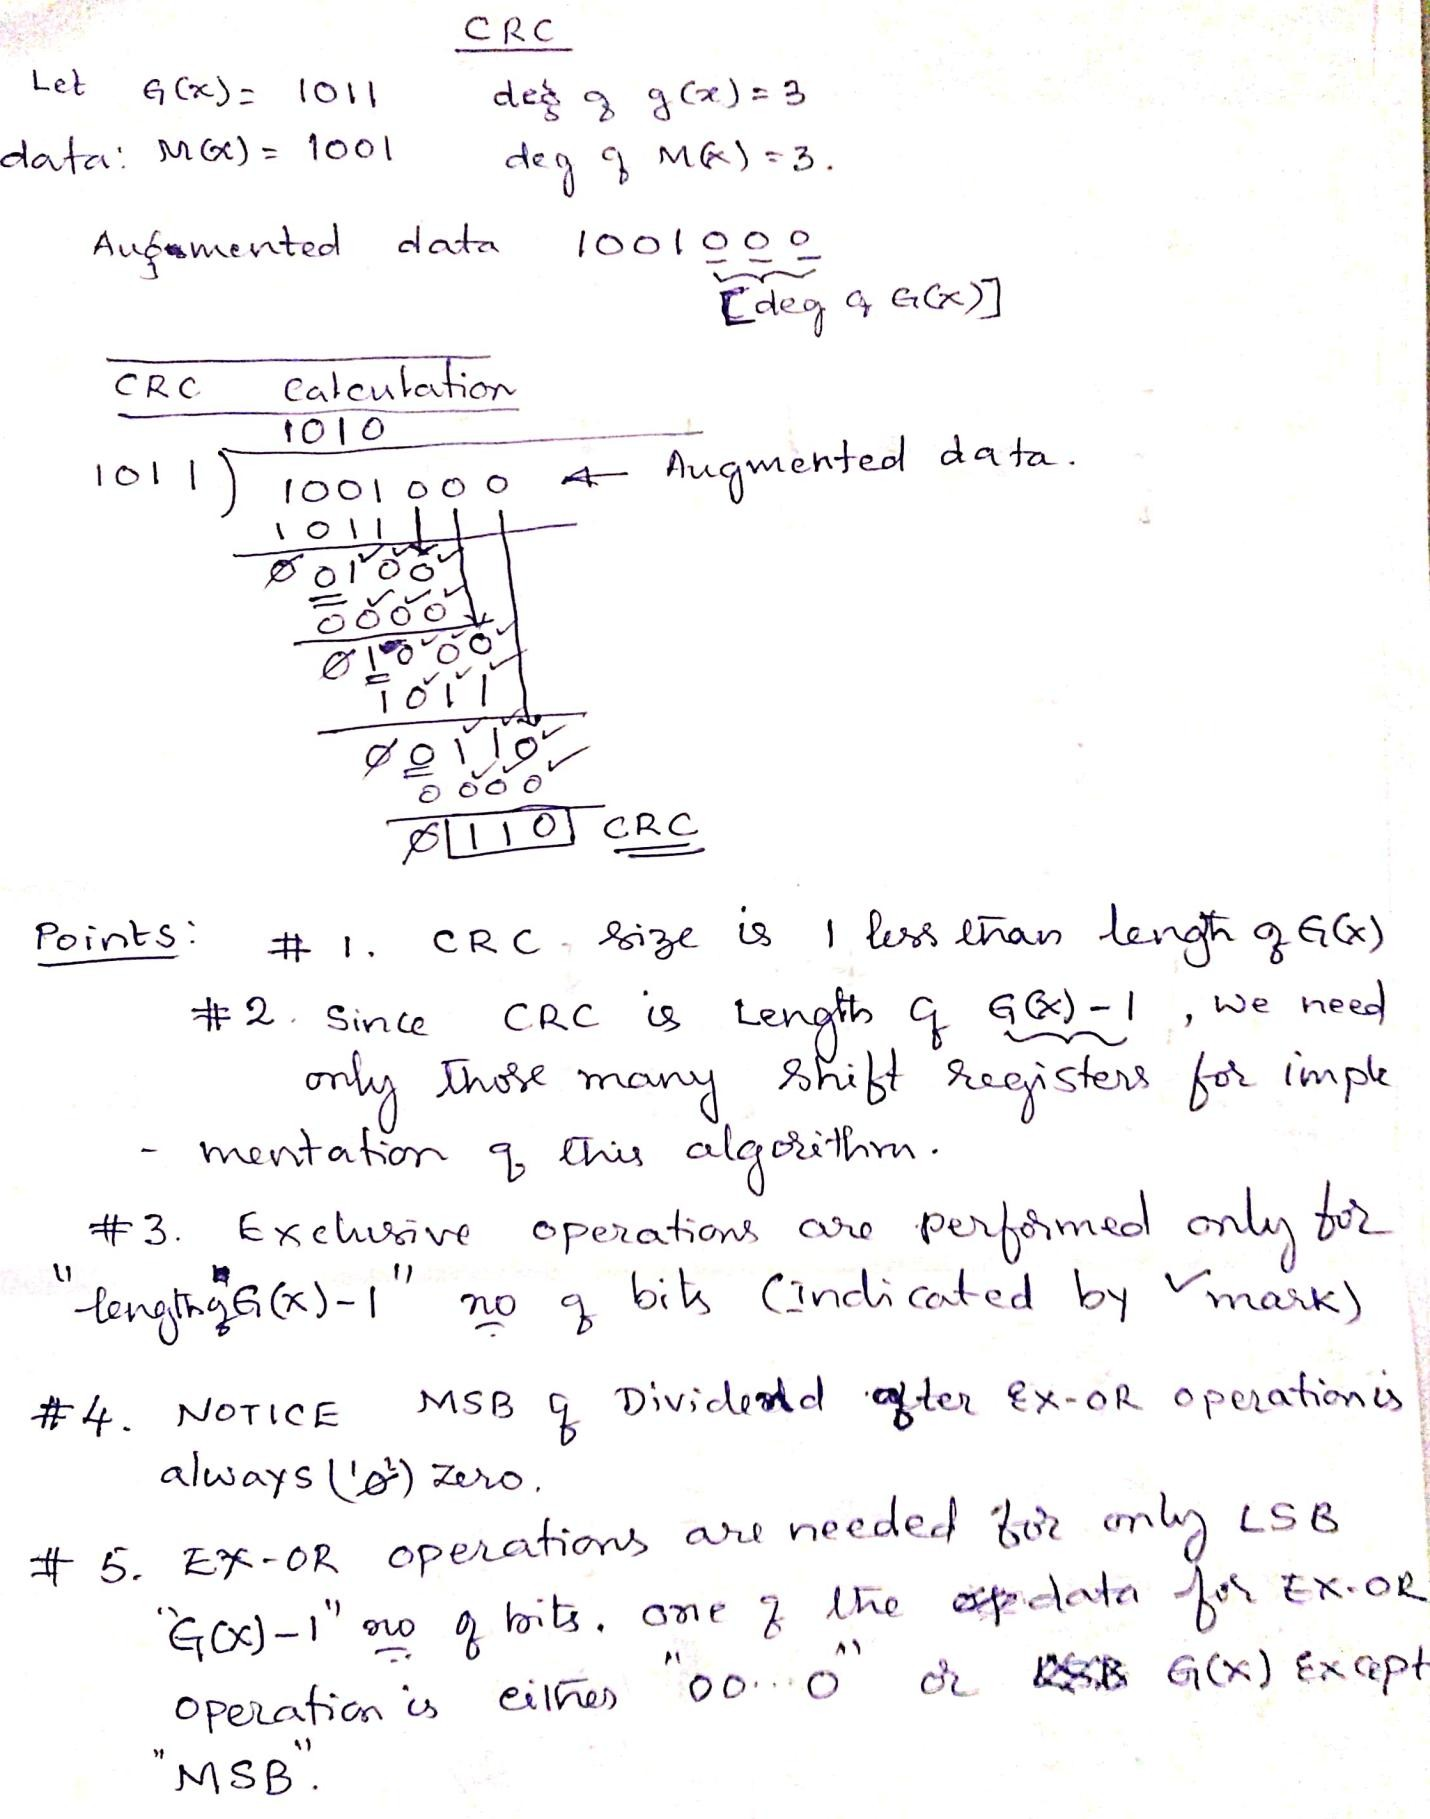 CRC
Let G(x) = 1011 deg of g(x) = 3
data: M(x) = 1001 deg of M(x) = 3.
Augmented data 1001000
[deg of G(x)]
CRC Calculation
1010
1011) 1001000 ← Augmented data.
1011
00100
0000
01000
1011
00110
0000
0110 CRC
Points: # 1. CRC size is 1 less than length of G(x)
#2. Since CRC is Length of G(x)-1, we need
only those many shift registers for imple
- mentation of this algorithm.
#3. Exclusive operations are performed only for
"length of G(x)-1" no of bits (indicated by ✓ mark)
#4. NOTICE MSB of Dividend after EX-OR operation is
always ('0') zero.
# 5. EX-OR operations are needed for only LSB
"G(x)-1" no of bits. one of the data for EX-OR
operation is either "00...0" or G(x) Except
"MSB".